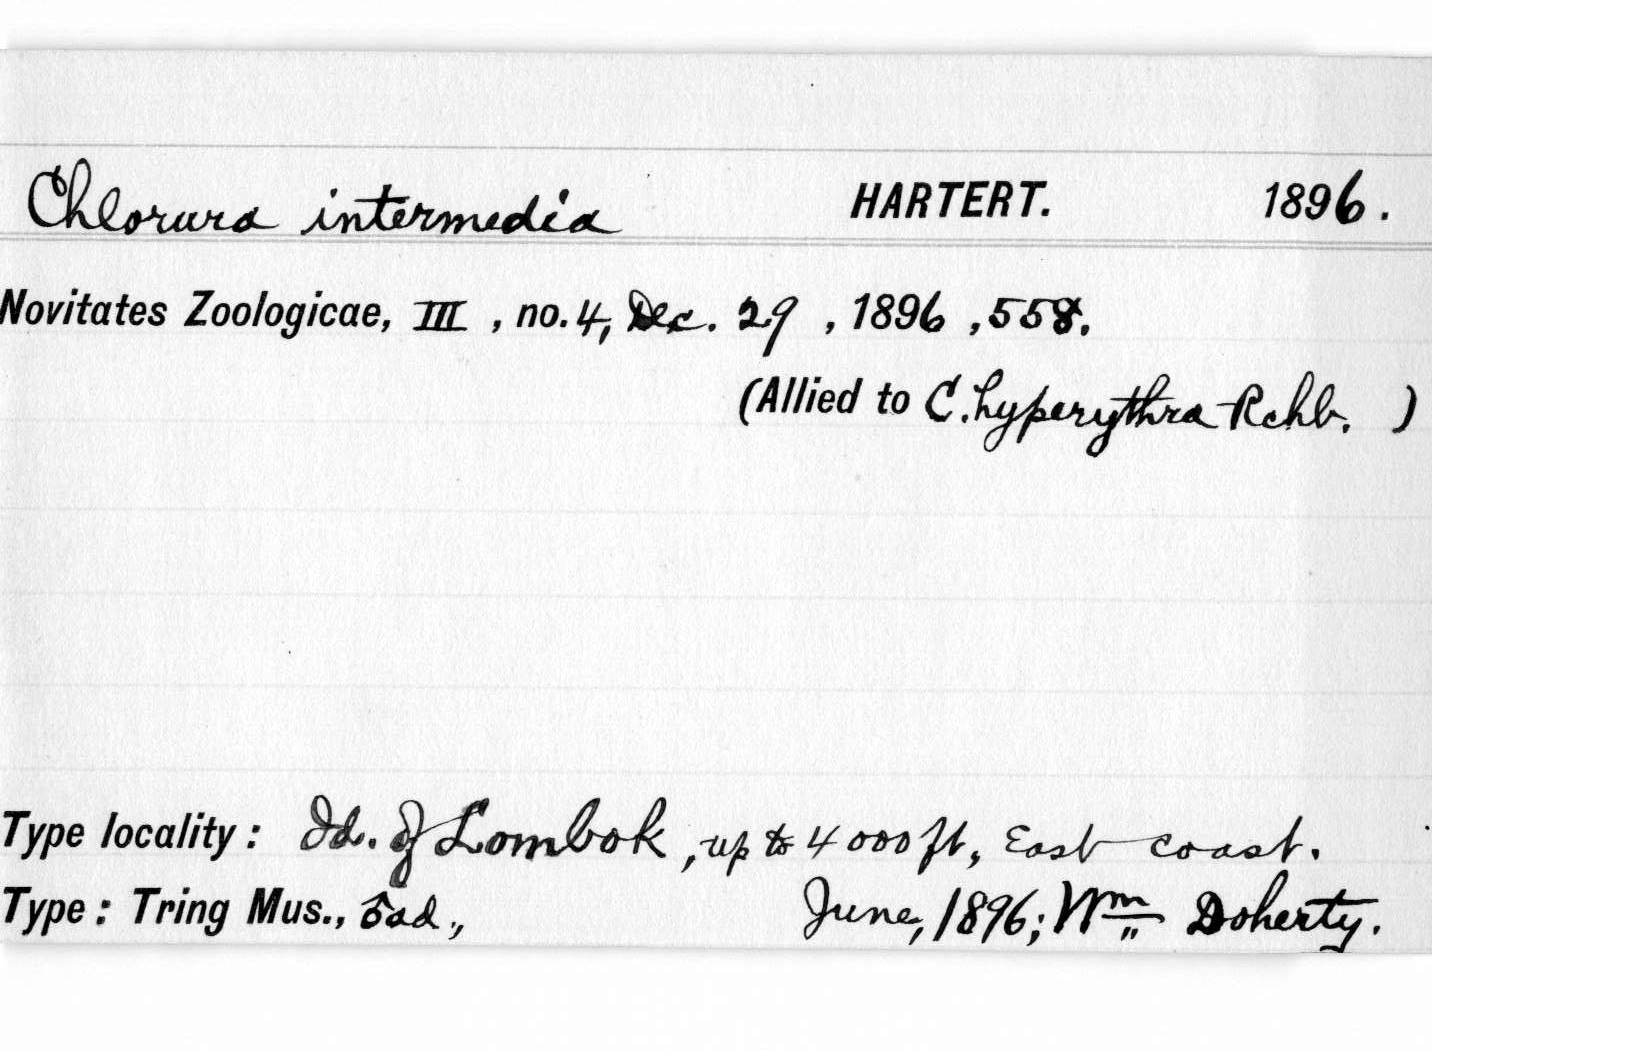 Chlorura intermedia HARTERT. 1896.
Novitates Zoologicae, III, no. 4, Dec. 29, 1896, 558.
(Allied to C. hyperythra Rchb. )
Type locality: Id. of Lombok, up to 4000 ft, East coast.
Type: Tring Mus., ad., June, 1896; Wm Doherty.